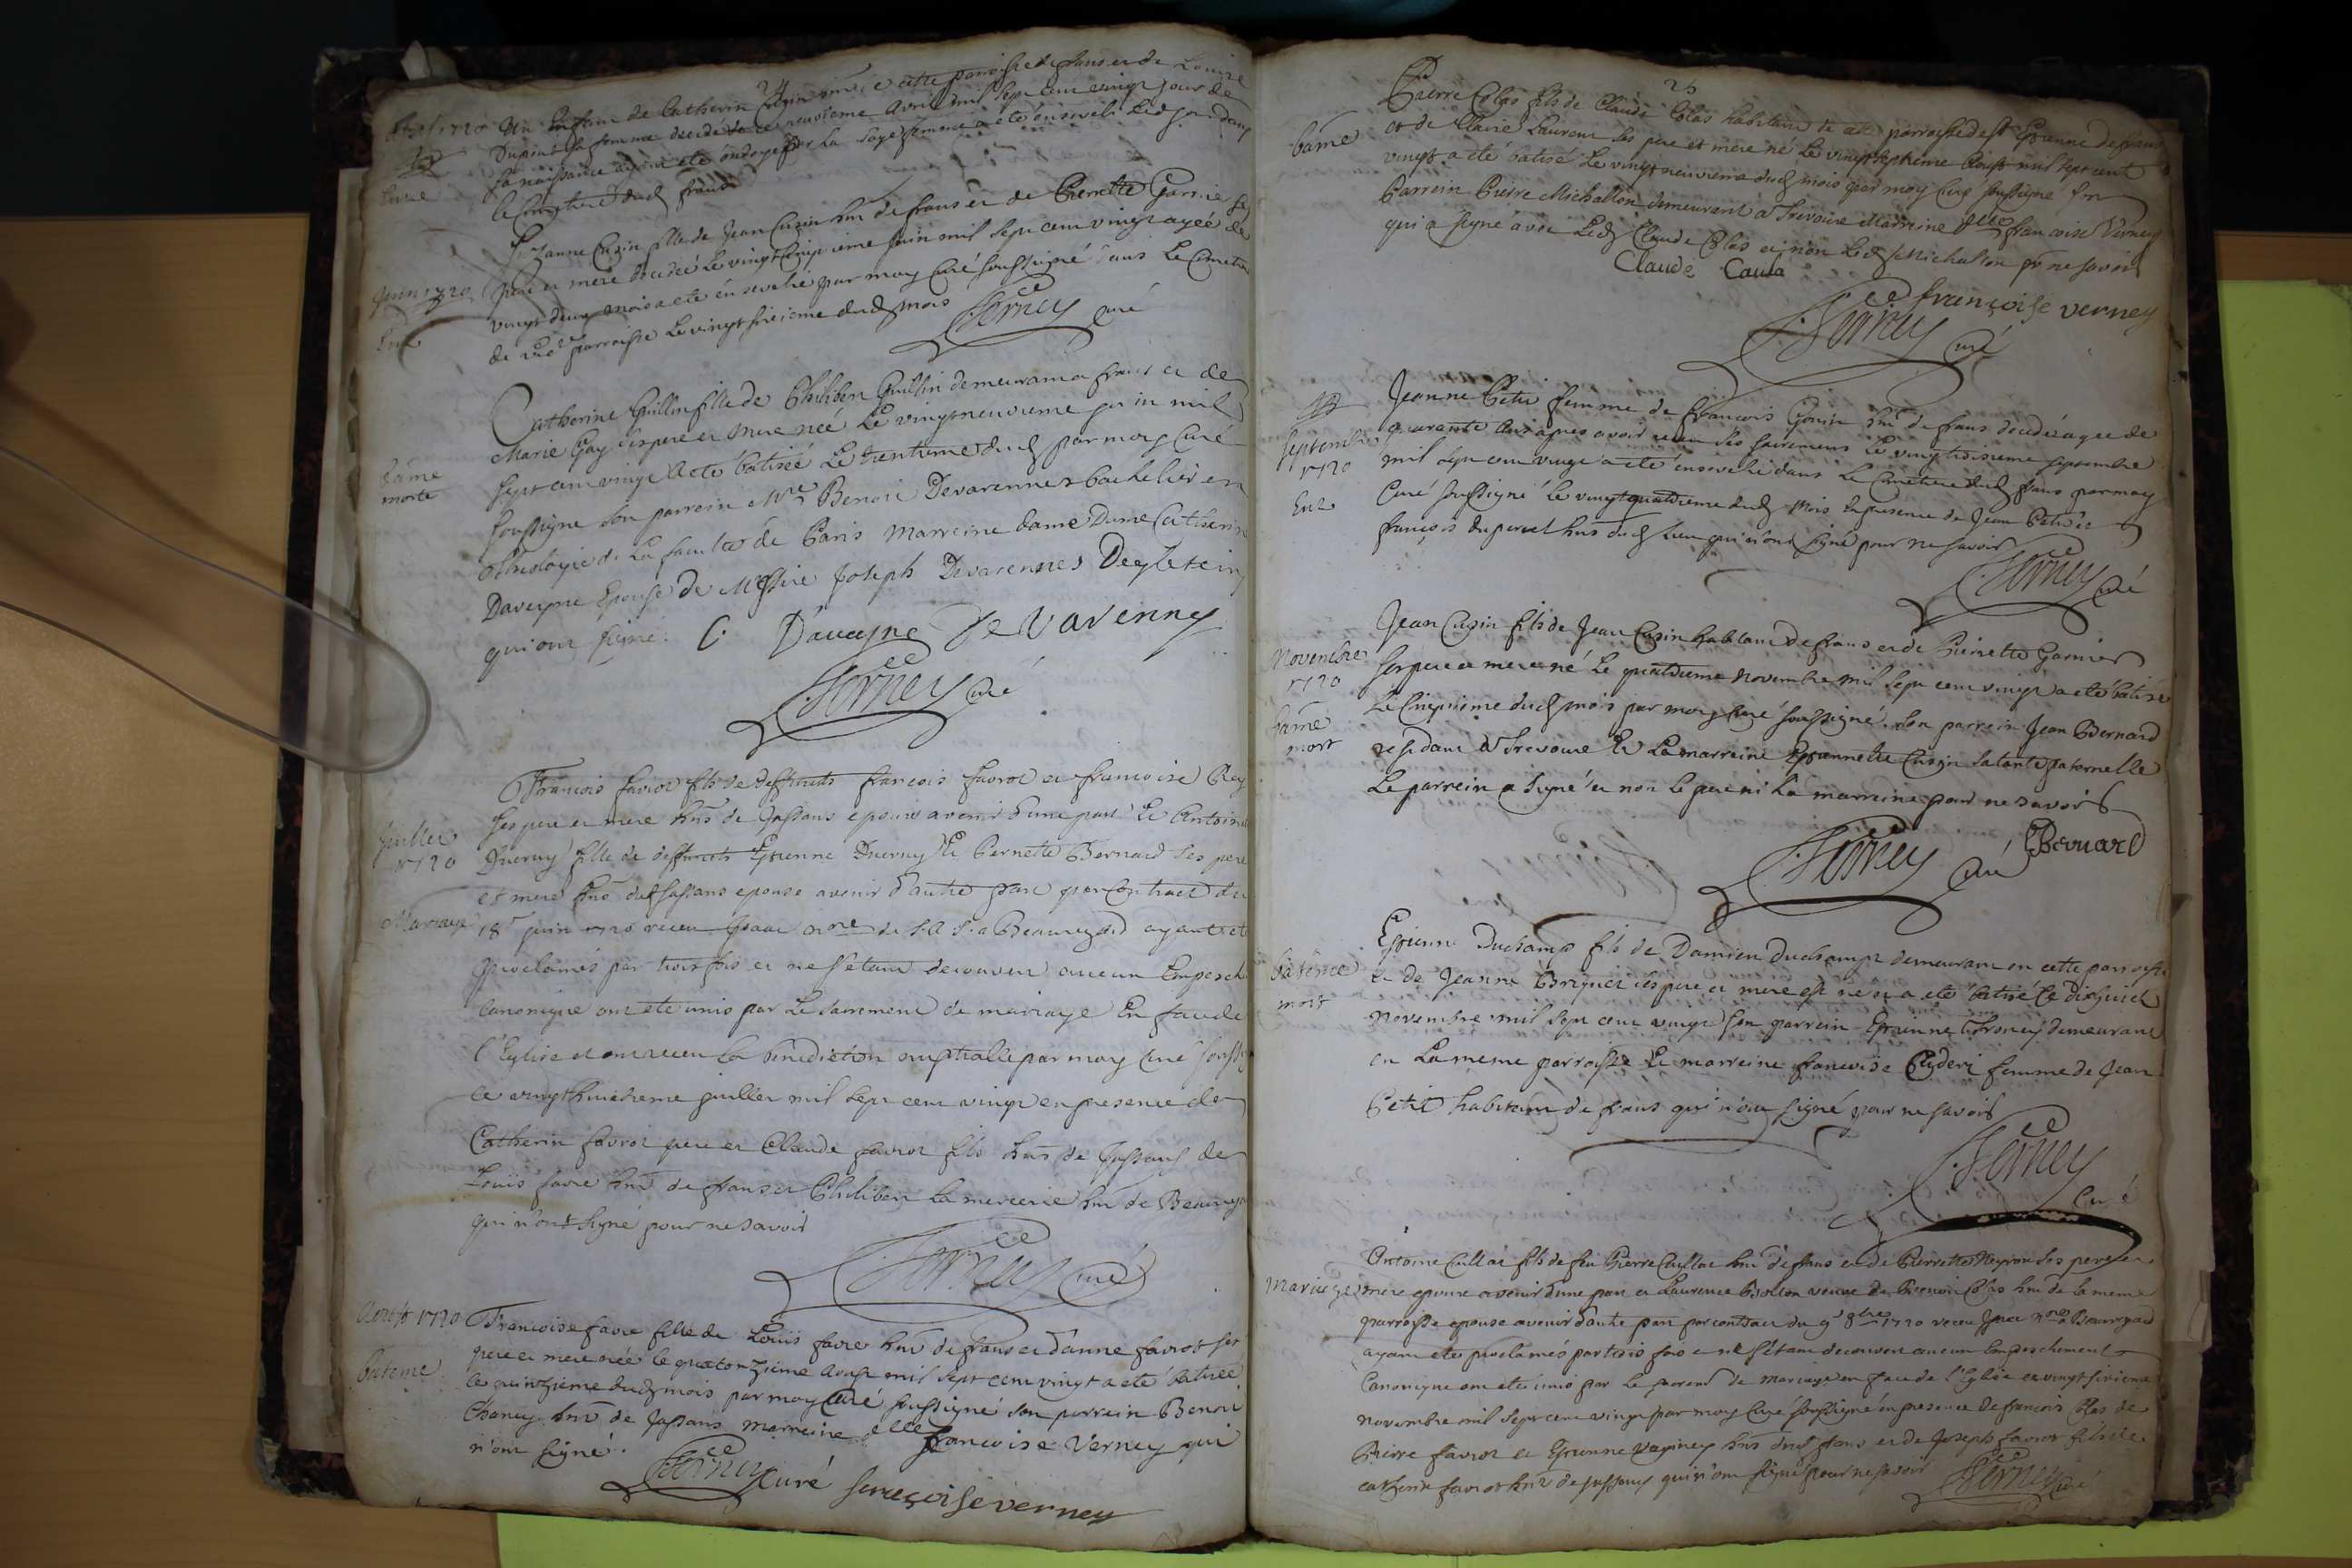 24
Un Enfant de Catherin Cusin hnt de cette parroisse de frans et de Louise
Dupont sa femme decedé le neuvieme avril mil sept cent vingt jour de
sa naissance ayant eté ondoyé par la sage femme a eté énseveli led jour dans
le Cimetiere dud frans
Juin 1720
Suzanne Cusin fille de Jean Cusin hnt de frans et de Pierrette Garnier ses
pere et mere decedeé Le vingt cinquieme juin mil sept cent vingt ageé de
vingt deux mois a eté énsevelie par moy Curé soussigné dans Le Cimetiere
de parroisse Le vingt sixieme dud mois
Verney Curé
bame
morte
Catherine Guillin fille de Philibert Guillin demeurant a frans et de
Marie Gay ses pere et mere neé Le vingt neuvieme juin mil
sept cent vingt a eté batiseé Le trentieme dud par moy Curé
soussigné son parrein Mre Benoit Devarennes bachelier en
theologie de La faculté de Paris Marreine dame Dame Catherine
Daveyne Epouse de Messire Joseph Devarennes Degletein
qui ont signé. C. Daveyne De Varennes
Verney Curé
Juillet
1720
Mariage
François favrot fils de deffunts françois favrot et françoise Rey
ses pere et mere hns de Jassans epoux avenir d'une part Et Antoinette
Ducruy fille de deffunts Etienne Ducruy Et Pernette Bernard ses pere
et mere hns dud Jassans epouse avenir d'autre part par Contract du
18r juin 1720 receu Isaac nore de S.A. S. a Beauregard ayant eté
proclamés par trois fois et ne s'etant decouvert aucun Empesch
Canonique ont eté unis par Le sacrement de mariage En face de
l'Eglise et ont receu La benediction nuptialle par moy Curé soussigné
ce vingt huictieme juillet mil sept cent vingt en presence de
Catherin favrot pere et Claude favrot fils hns de Jassans de
Louis favre hnt de frans et Philibert La mercerie hnt de Beauregard
qui n'ont signé pour ne savoir
Verney Curé
Aoust 1720
bateme
Françoise favre fille de Louis favre hnt de frans et d'anne favrot ses
pere et mere neé le quatorzieme Aoust mil sept cent vingt a eté batiseé
le quinzieme dud mois par moy Curé soussigné son parrein Benoit
Chaney hnt de Jassans marreine delle françoise Verney qui
n'ont signé.
Verney Curé françoise verney
25
bame
Pierre Colas fils de Claude Colas habitant de cete parroisse de st Etienne de frans
et de Claire Laurent ses pere et mere né Le vingt septieme Aoust mil sept cent
vingt a eté batisé Le vingt neuvieme dud mois par moy Curé soussigné son
Parrein Pierre Michallon demeurant a Trevoux Marreine delle françoise Verney
qui a signé avec Led Claude Colas et non Led Michallon pr ne savoir
Claude Caula
françoise verney
Verney Curé
Septembre
1720
Ent
Jeanne Petit femme de françois Gonin hnt de frans decedeé ageé de
quarante ans apres avoir receu ses sacremens Le vingt troisieme septembre
mil sept cent vingt a eté énsevelie dans Le Cimetiere dud frans par moy
Curé soussigné Le vingt quatrieme dud mois En presence de Jean Petit et
françois duperret hns dud Lieu qui n'ont signé pour ne savoir
Verney Curé
Novembre
1720
bame
mort
Jean Cusin fils de Jean Cusin habitant de frans et de Pierrette Garnier
ses pere et mere né Le quatrieme novembre mil sept cent vingt a eté batisé
Le Cinquieme dud mois par moy Curé soussigné. Son parrein Jean Bernard
residant a Trevoux Et La marreine Etiennette Cusin sa tante paternelle
Le parrein a signé et non Le pere ni La marreine pour ne savoir
Verney Curé Bernard
bateme
mort
Etienne Duchamp fils de Damien Duchamp demeurant en cette parroisse
Et de Jeanne Briquet ses pere et mere est né et a eté batisé le dixhuict
Novembre mil sept cent vingt son parrein Etienne demeurant
en La meme parroisse Et marreine françoise femme de Jean
Petit habitant de frans qui n'ont signé pour ne savoir
Verney
Curé
Mariage
Antoine Cullat fils de feu Pierre Cullat hnt de frans et de Pierrette Neyron ses pere et
mere epoux avenir d'une part et Laurence Bollon veuve de Benoit Colas hnt de la meme
parroisse epouse avenir d'autre part par contract du 9e 8bre 1720 receu Isaac nore a Beauregard
ayant eté proclamés par trois fois et ne s'etant decouvert aucun Empeschement
Canonique ont eté unis par Le sacremt de mariage en face de l'Eglise ce vingt sixieme
novembre mil sept cent vingt par moy Curé soussigné en presence de françois Colas de
Pierre favrot et Etienne Vaginay hns dud frans et de Joseph favrot fils de
catherin favrot hnt de Jassans qui n'ont signé pour ne savoir
Verney Curé